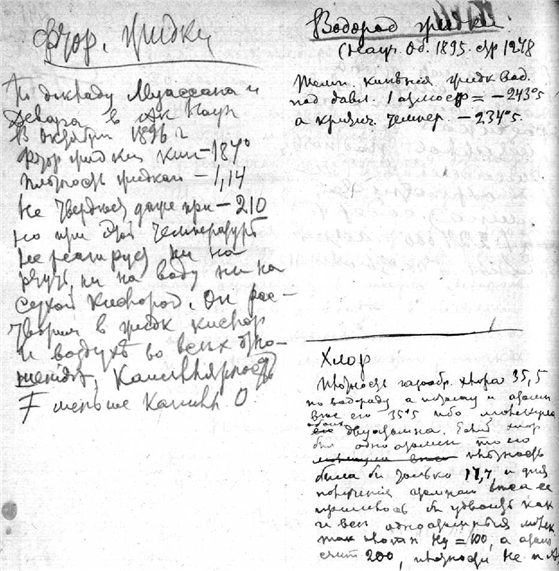 Фтор. жидкий
По докладу Муассана и
Девара в Ак Наук
В октябрь 1896 г
Фтор жидкий кип – 187°
плотность жидкаго – 1,14
Не твердеет даже при – 210
но при этой температурѣ
не реагирует ни на
ртуть, ни на воду ни на
сухой кислород. Он рас–
творим в жидк кислор
и воздухѣ во всех отно–
шениях, Капиллярность
F меньше капилл. O
Водород жидкий.
(Науч. Об. 1895. стр 1248
Темп. кипѣния жидк Вод.
под давл. 1 атмосф = –243°5
а критич. темпер. – 234°5.
Хлор
Плотность газообр. хлора 35,5
по водороду а потому и атомн
вес его 35°5 ибо молекула
его двуатомна. Если хлор
был одноатомен то его
плотность
была бы только 17,7 и для
получения атомнаго веса ее
пришлось бы удвоить как
и всех одноатомных молек
так плотн Hg = 100, а атом
счит 200, плотность Не